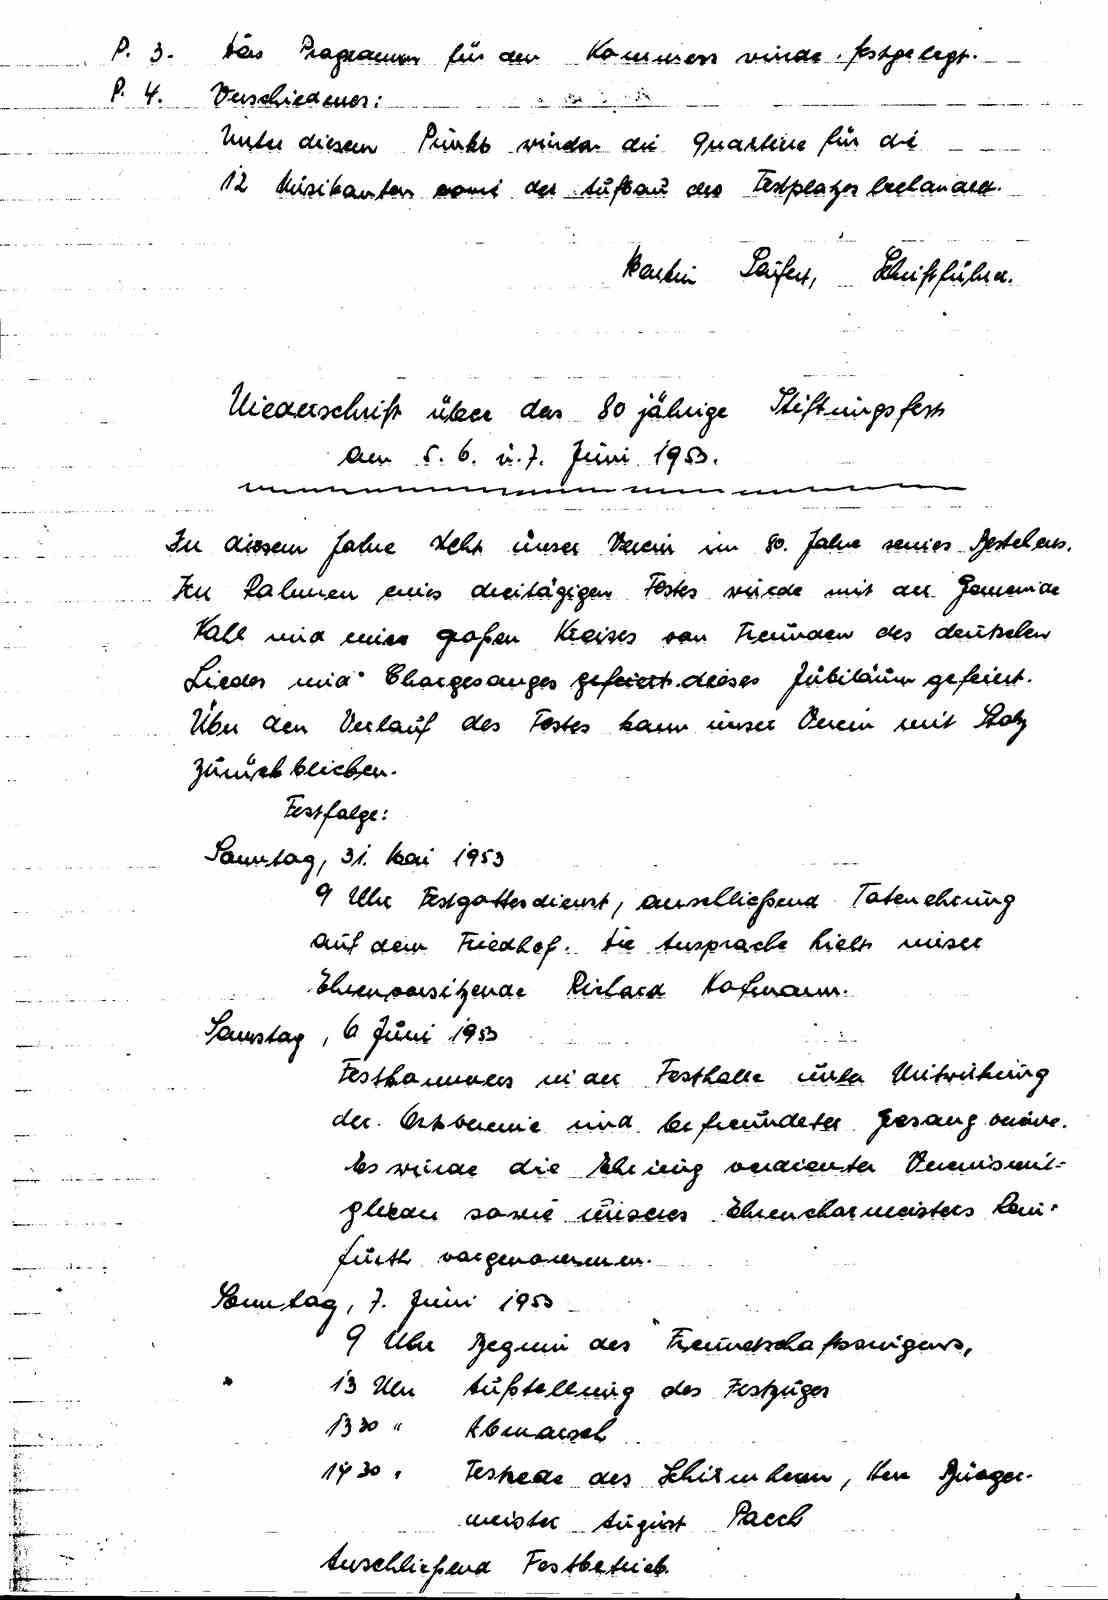 P. 3. Das Programm für den Kommers wurde festgelegt.
P. 4. Verschiedenes:
Unter diesem Punkt wurden die Quartiere für die
12 Musikanten sowie der Aufbau des Festplatzes behandelt.
Martin Seifert, Schriftführer.
Niederschrift über das 80 jährige Stiftungsfest
am 5. 6. u. 7. Juni 1953.
In diesem Jahre steht unser Verein im 80. Jahre seines Bestehens.
Im Rahmen eines dreitägigen Festes wurde mit der Gemeinde
Kahl und eines großen Kreises von Freunden des deutschen
Liedes und Chorgesanges gefeiert dieses Jubiläum gefeiert.
Über den Verlauf des Festes kann unser Verein mit Stolz
zurückblicken.
Festfolge:
Sonntag, 31. Mai 1953
9 Uhr Festgottesdienst, anschließend Totenehrung
auf dem Friedhof. Die Ansprache hielt unser
Ehrenvorsitzende Richard Hofmann.
Samstag, 6 Juni 1953
Festkommers in der Festhalle unter Mitwirkung
der Ortsvereine und befreundeter Gesangvereine.
Es wurde die Ehrung verdienter Vereinsmit-
glieder sowie unseres Ehrenchormeisters
vorgenommen.
Sonntag, 7. Juni 1953
9 Uhr Beginn des Freundschaftssingens,
13 Uhr Aufstellung des Festzuges
13 30 " Abmarsch
14 30 " Festrede des Schirmherrn, Herr Bürger-
meister August Pasch
Anschließend Festbetrieb.